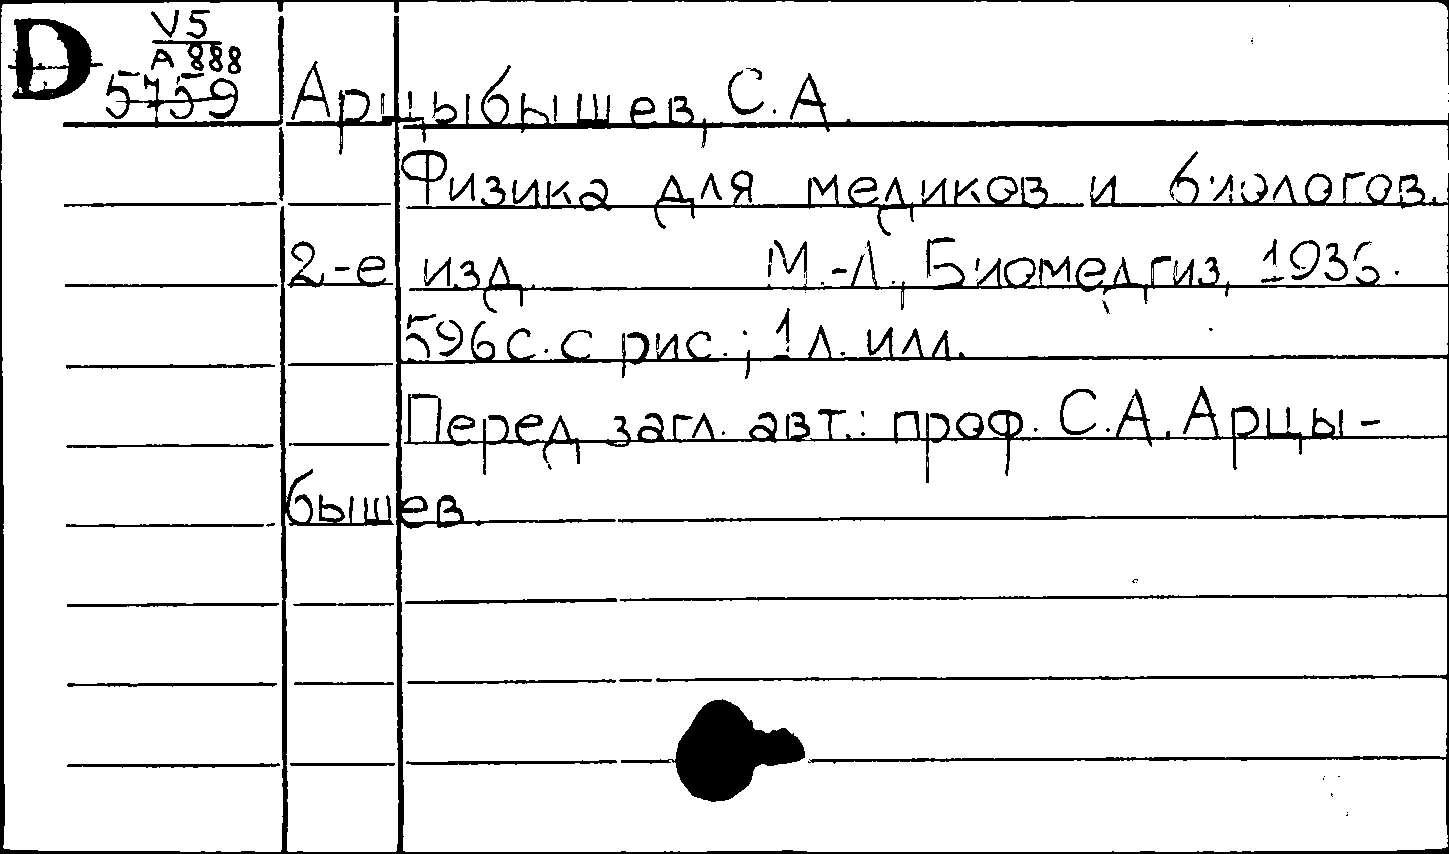 D V5
А 888
5759
Арцыбышев, С.А.
Физика для медиков и биологов.
2-е изд. М.-Л., Биомедгиз, 1936.
596с. с рис.; 1 л. илл.
Перед загл. авт.: проф. С.А. Арцы-
бышев.